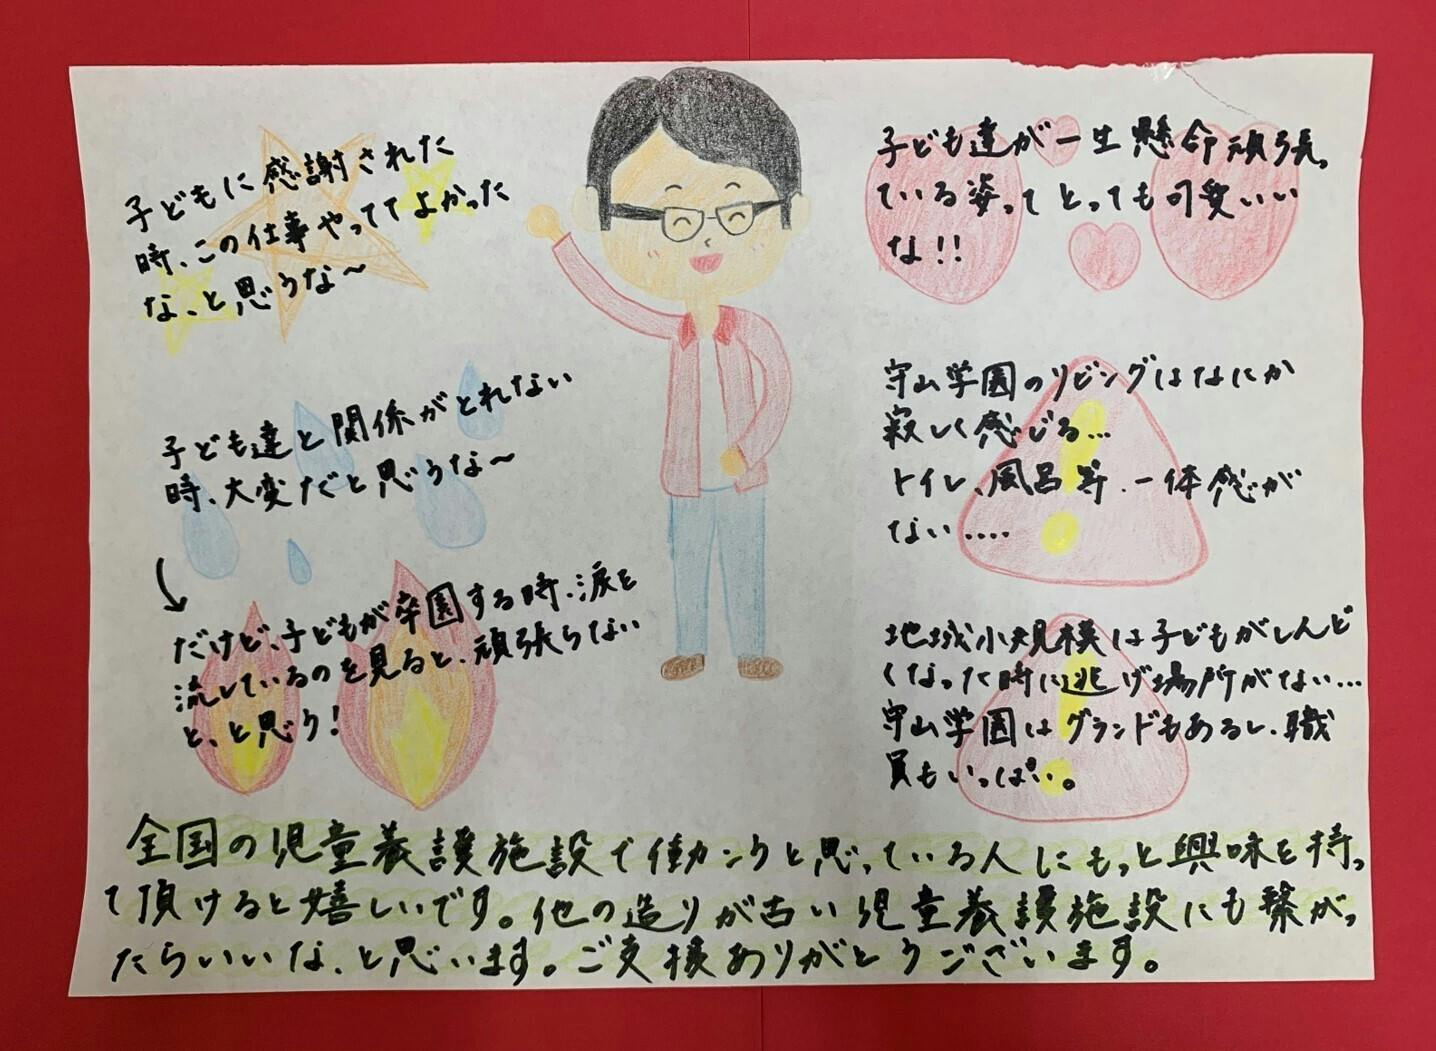 子どもに感謝された
時、この仕事やっててよかった
な、と思うな〜
子ども達と関係がとれない
時、大変だと思うな〜
だけど、子どもが卒園する時、涙を
流しているのを見ると、頑張らない
と、と思う!
子ども達が一生懸命頑張っ
ている姿ってとっても可愛いい
な!!
守山学園のリビングはなにか
寂しく感じる...
トイレ、風呂等、一体感が
ない....
地域小規模は子どもがしんど
くなった時に逃げ場所がない...
守山学園はグランドもあるし、職
員もいっぱい。
全国の児童養護施設で働カンクと思っている人にもっと興味を持っ
て頂けると嬉しいです。他の造りが古い児童養護施設にも繋がっ
たらいいな、と思います。ご支援ありがとうございます。